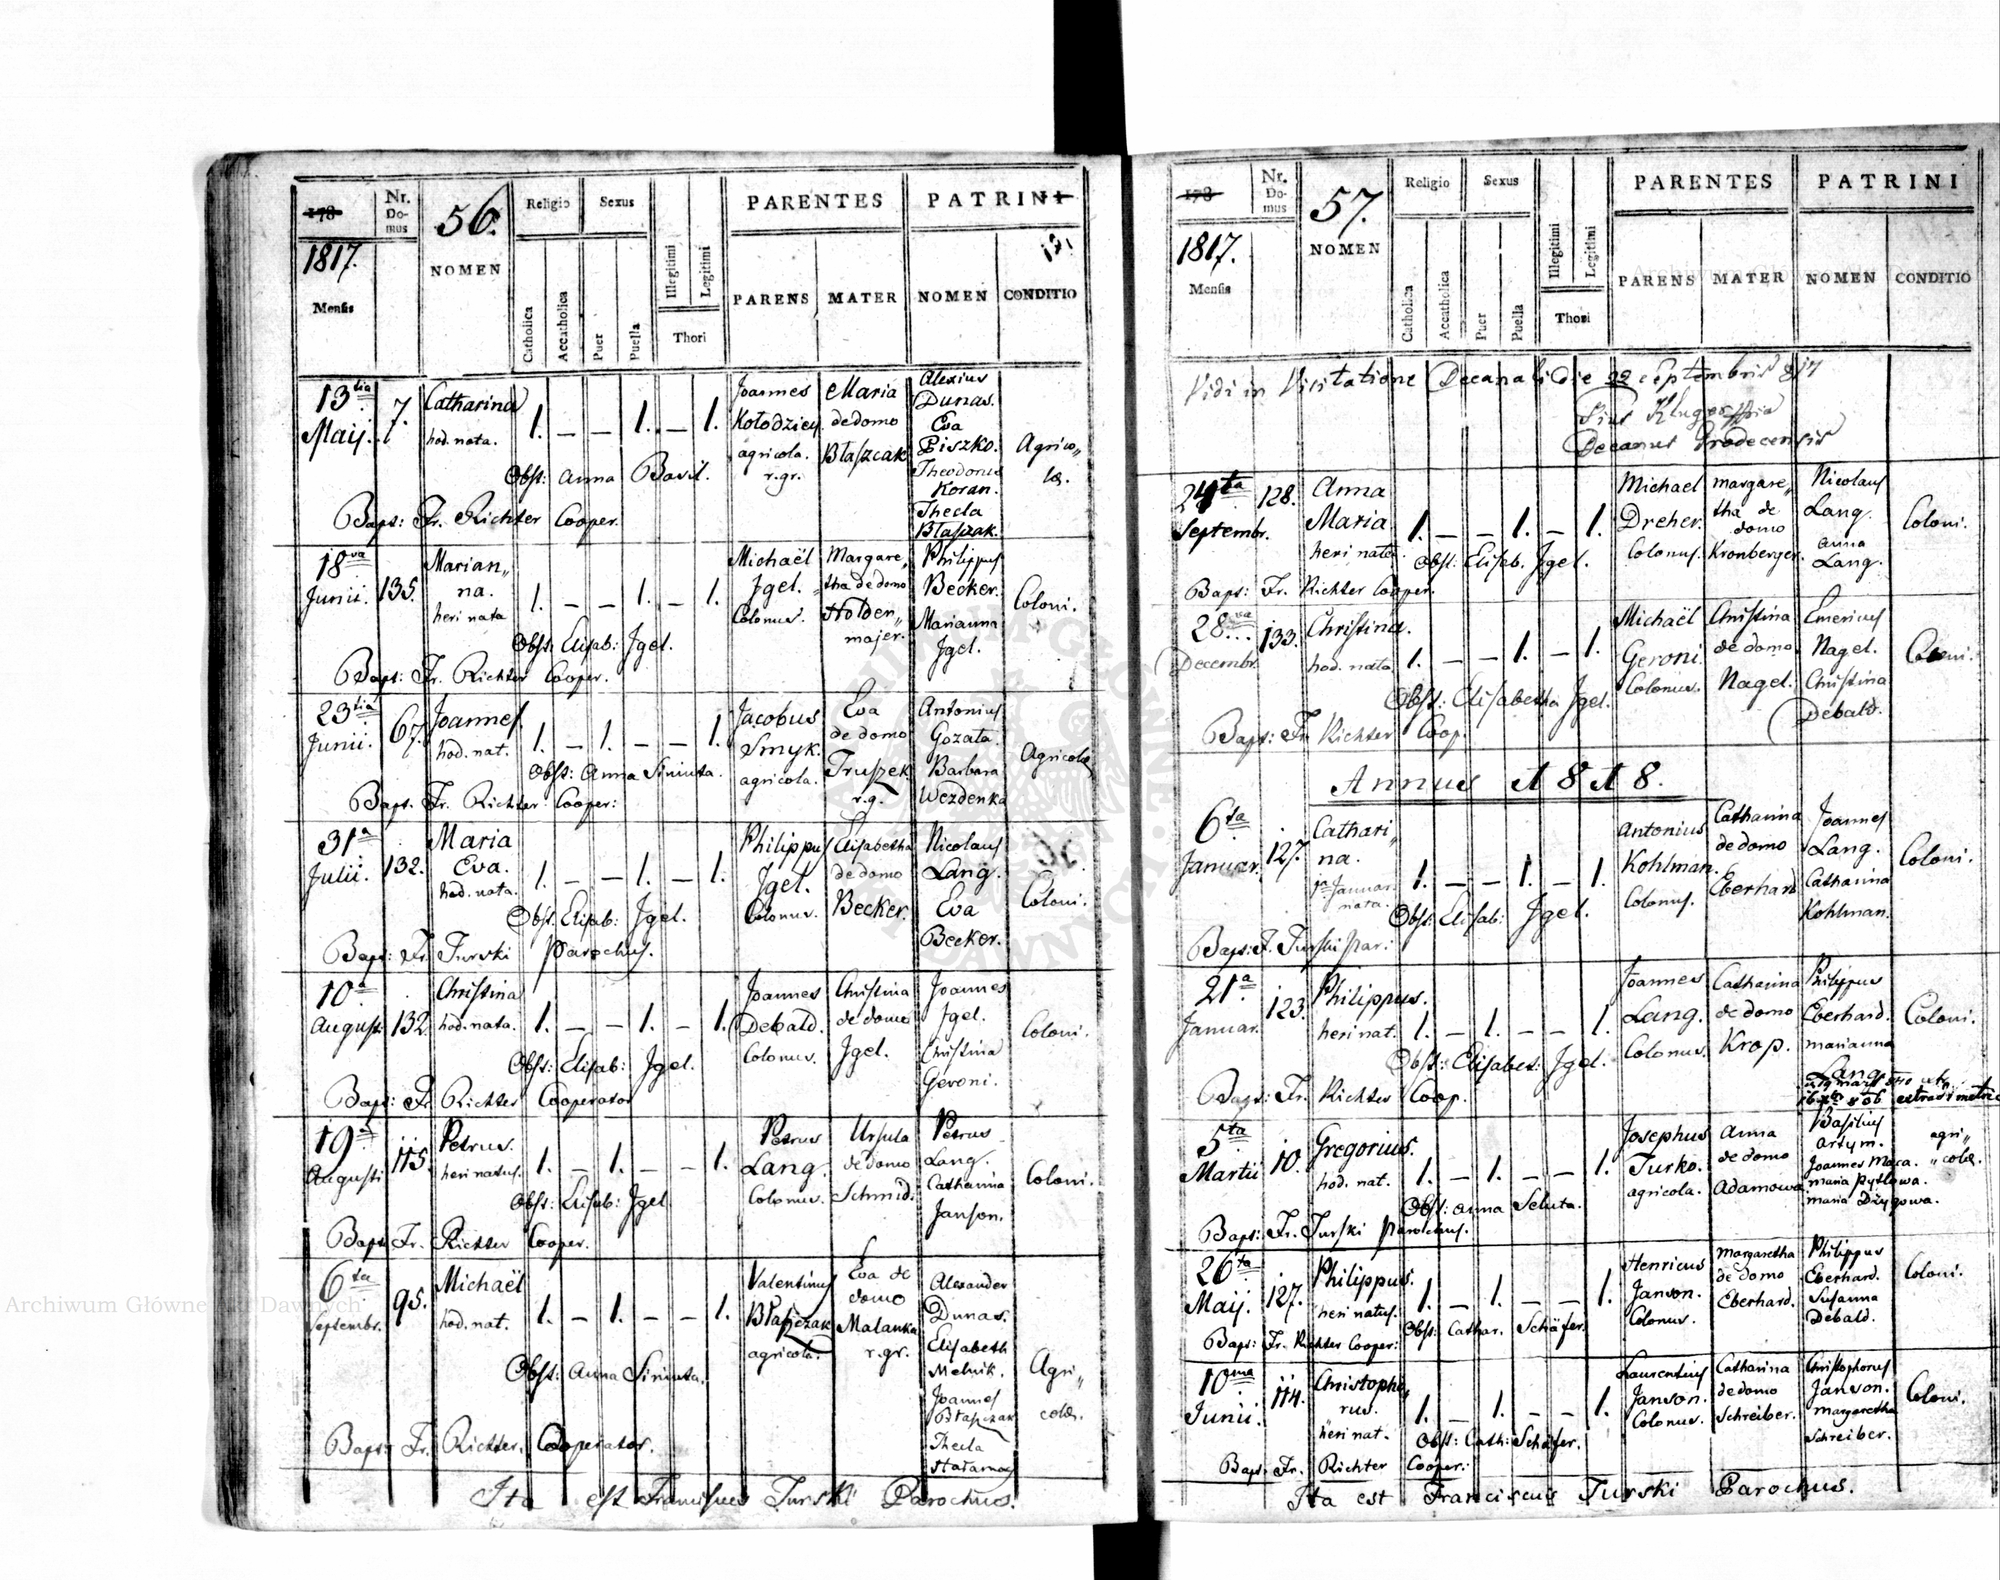 178
Nr. Do- mus
56.
Religio
Sexus
PARENTES
PATRINI
1817.
NOMEN
Mensis
Catholica
Accatholica
Puer
Puella
Illegitimi
Legitimi
Thori
PARENS
MATER
NOMEN
CONDITIO
13tia Maij.
7.
Catharina
hod. nata.
1. – – 1. – 1.
Joannes
Kołodziey
agricola.
r. gr.
Maria
de domo
Błaszczak
Alexius
Dunas.
Eva
Piszko.
Theodorus
Koran.
Thecla
Błaszak.
Agrico„
læ.
Obst: Anna Basil.
Bapt: Fr. Richter Cooper.
18va Junii.
135.
Marian„
na.
heri nata
1. – – 1. – 1.
Michaël
Jgel.
Colonus.
Margare„
tha de domo
Holden„
majer.
Philippus
Becker.
Marianna
Jgel.
Coloni.
Obst: Elisab: Jgel.
Bapt: Fr. Richter Cooper.
23tia Junii.
67.
Joannes
hod. nat.
1. – 1. – – 1.
Jacobus
Smyk.
agricola.
Eva
de domo
Truszek
r. g.
Antonius
Gozata.
Barbara
Wezdenka
Agricolæ
Obst: Anna Siniuta.
Bapt. Fr. Richter Cooper:
31a Julii.
132.
Maria
Eva.
hod. nata.
1. – – 1. – 1.
Philippus
Jgel.
Colonus.
Elisabetha
de domo
Becker.
Nicolaus
Lang.
Eva
Becker.
Coloni.
Obst: Elisab: Jgel.
Bapt: Fr. Turski Parochus.
10a August
132.
Christina
hod. nata.
1. – – 1. – 1.
Joannes
Debald.
Colonus.
Christina
de domo
Jgel.
Joannes
Jgel.
Christina
Geroni.
Coloni.
Obst: Elisab: Jgel.
Bapt: Fr Richter Cooperator
19a Augusti
115.
Petrus.
heri natus.
1. – 1. – – 1.
Petrus
Lang.
Colonus.
Ursula
de domo
Schmid.
Petrus
Lang.
Catharina
Janson.
Coloni.
Obst: Elisab: Jgel
Bapt. Fr. Richter Cooper.
6ta Septembr.
95.
Michaël
hod. nat.
1. – 1. – – 1.
Valentinus
Błaszczak
agricola.
Eva de
domo
Malanka
r. gr.
Alexander
Dunas.
Elisabeth
Melnik.
Joannes
Błaszczak
Thecla
Agri„
colæ.
Obst: Anna Siniuta.
Bapt: Fr. Richter. Cooperator.
Ita est Franciscus Turski Parochus.
178
Nr. Do- mus
57.
Religio
Sexus
PARENTES
PATRINI
1817.
NOMEN
Mensis
Catholica
Accatholica
Puer
Puella
Illegitimi
Legitimi
Thori
PARENS
MATER
NOMEN
CONDITIO
Vidi in Visitatione Decanali die 22 Septembris 817
Pius Kluger
Decanus Grodecensis
24ta Septembr.
128.
Anna
Maria
heri nata.
1. – – 1. – 1.
Michael
Dreher.
Colonus.
Margare„
tha de
domo
Kronberger.
Nicolaus
Lang.
Anna
Lang.
Coloni.
Obst: Elisab. Jgel.
Bapt: Fr. Richter Cooper.
28va Decembr.
133.
Christina.
hod. nata.
1. – – 1. – 1.
Michaël
Geroni.
Colonus.
Christina
de domo
Nagel.
Emericus
Nagel.
Christina
Debald.
Coloni.
Obst: Elisabetha Jgel.
Bapt: Fr. Richter Coop.
Annus 1818.
6ta Januar.
127.
Cathari„
na.
Januar.
nata.
1. – – 1. – 1.
Antonius
Kohlman.
Colonus.
Catharina
de domo
Eberhard
Joannes
Lang.
Catharina
Kohlman.
Coloni.
Obst: Elisab: Jgel.
Bapt: F. Turski Par:
21a Januar.
123.
Philippus.
heri nat.
1. – 1. – – 1.
Joannes
Lang.
Colonus.
Catharina
de domo
Krop.
Philippus
Eberhard.
Marianna
Lang.
Coloni.
Obst: Elisabet: Jgel.
Bapt: Fr. Richter Coop.
5ta Martii
10.
Gregorius.
hod. nat.
1. – 1. – – 1.
Josephus
Turko.
agricola.
Anna
de domo
Adamowa
Basilius
Artym.
Joannes Maca.
Maria Pytlowa.
Maria Dzygowa.
agri„
„colæ.
Obst: Anna Seluta.
Bapt: Fr. Turski Parochus.
26ta Maij.
127.
Philippus.
heri natus.
1. – 1. – – 1.
Henricus
Janson.
Colonus.
Margaretha
de domo
Eberhard.
Philippus
Eberhard.
Susanna
Debald.
Coloni.
Obst: Cathar. Schäfer.
Bapt: Fr. Richter Cooper:
10ma Junii.
114.
Christopho„
rus.
heri nat.
1. – 1. – – 1.
Laurentius
Janson.
Colonus.
Catharina
de domo
Schreiber.
Christophorus
Janson.
Margaretha
Schreiber.
Coloni.
Obst: Cath: Schäfer.
Bapt. Fr. Richter Cooper:
Ita est Franciscus Turski Parochus.
Archiwum Główne Akt Dawnych